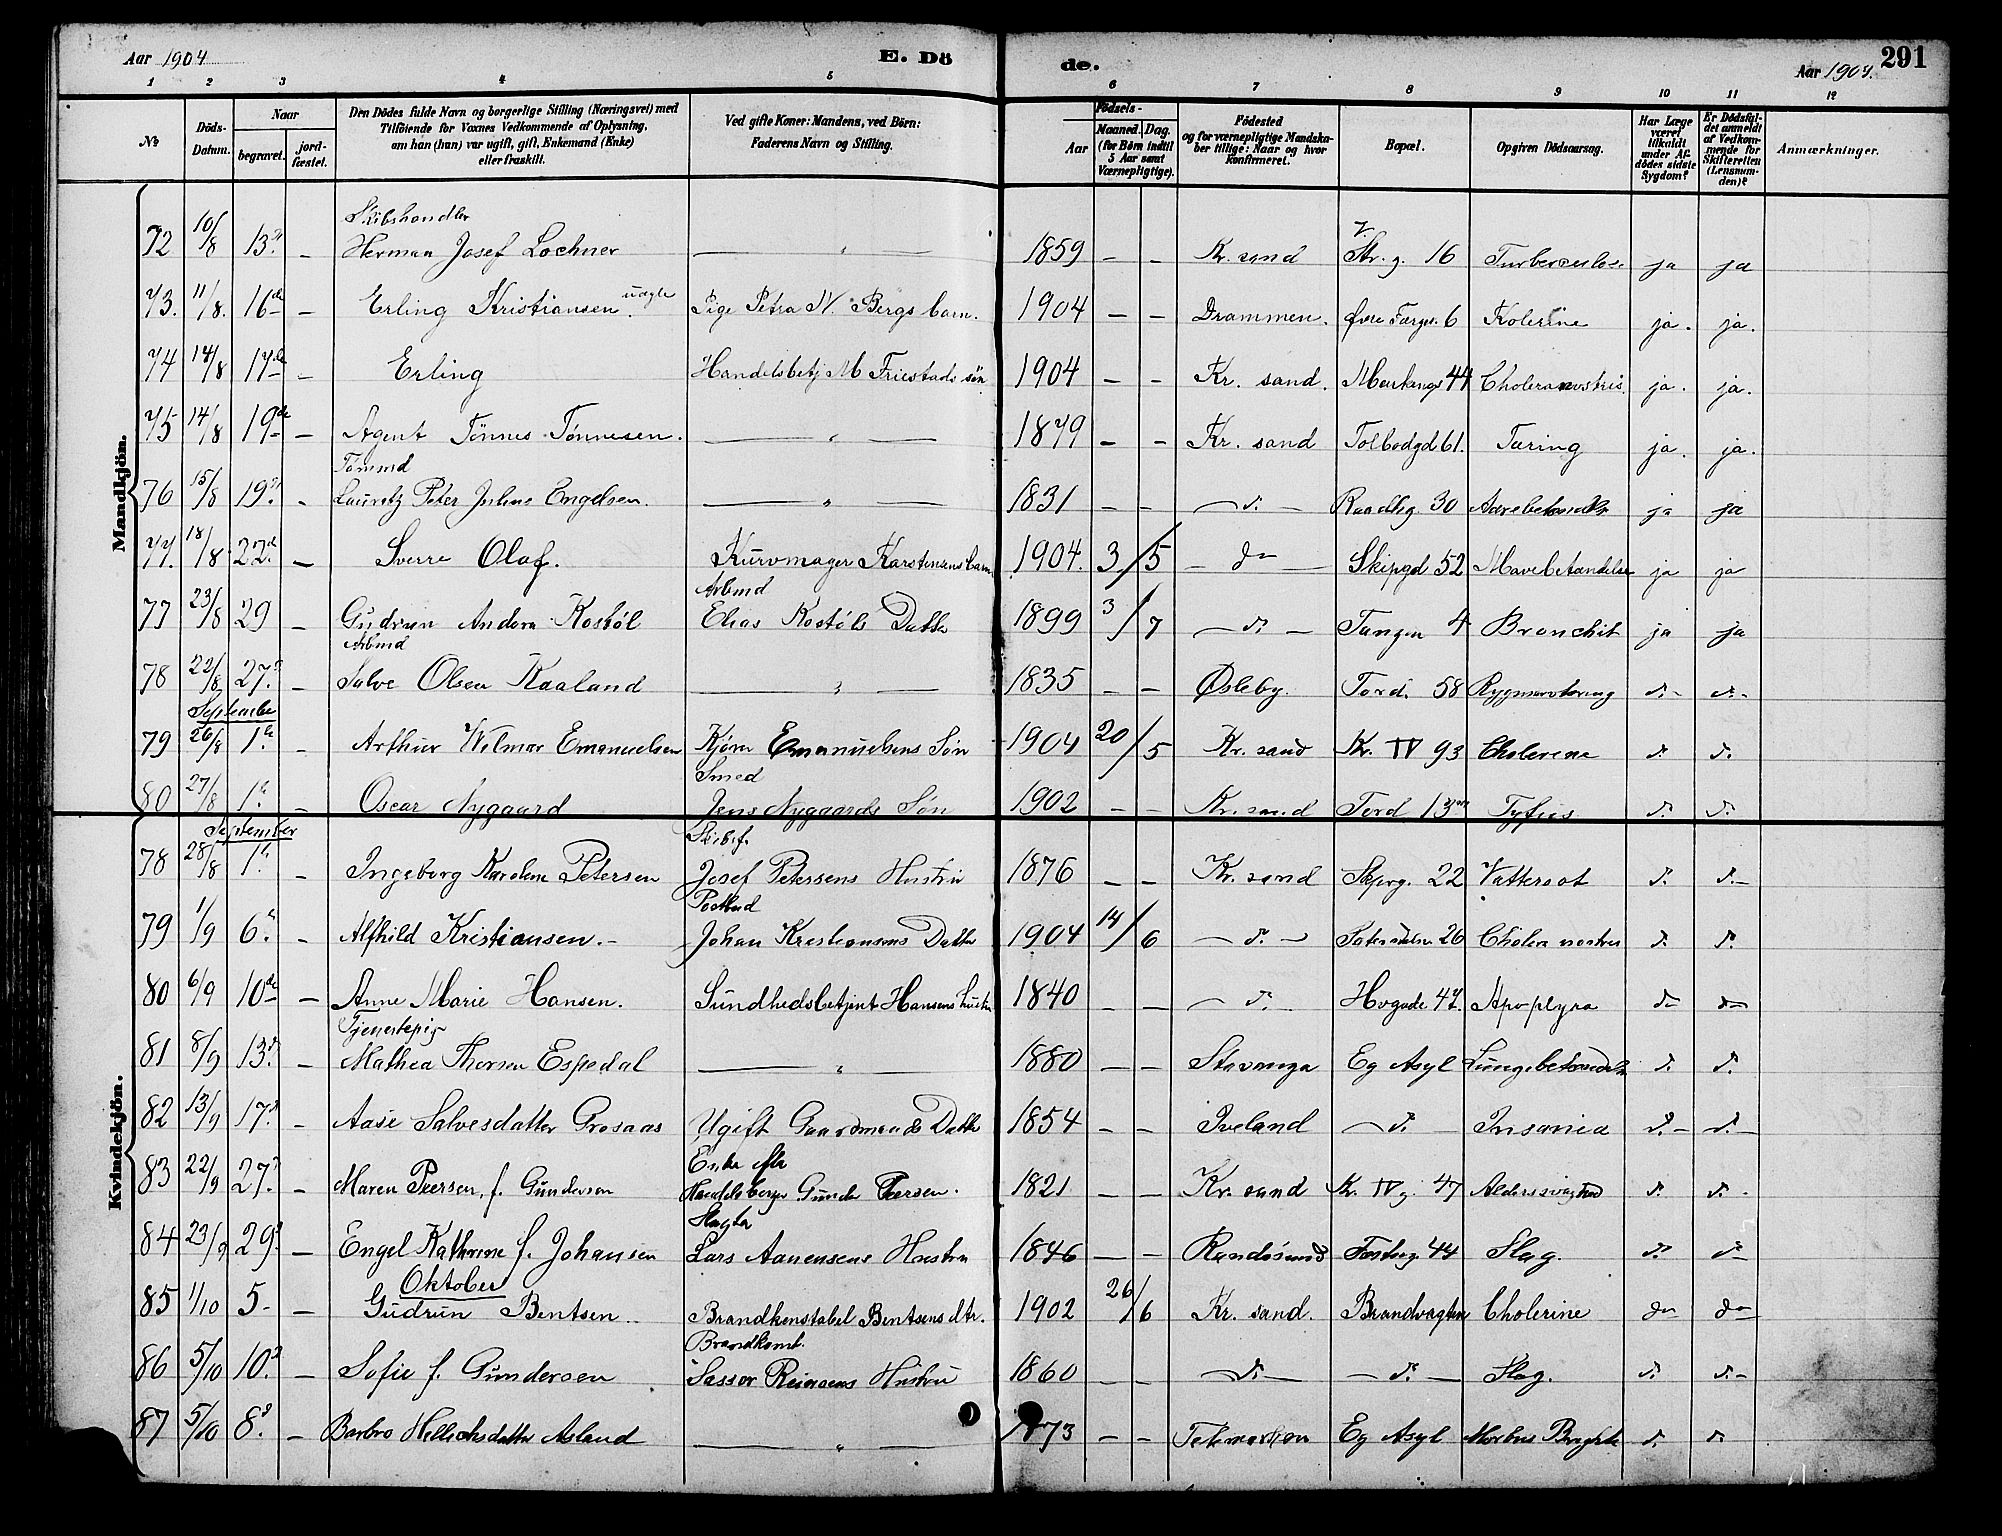 Aar 1904
E. Dö
de.
Aar 1904.
291
1 2 3 4 5 6 7 8 9 10 11 12
No
Döds-Datum.
Naar
begravet.
jord-fæstet.
Den Dödes fulde Navn og borgerlige Stilling (Næringsvei) med
Tilföiende for Voxnes Vedkommende af Oplysning,
om han (hun) var ugift, gift, Enkemand (Enke)
eller fraskilt.
Ved gifte Koner: Mandens, ved Börn:
Faderens Navn og Stilling.
Födsels-
Aar
Maaned. Dag.
(for Börn indtil
5 Aar samt
Værnepligtige).
Födested
og for værnepligtige Mandska-
ber tillige: Naar og hvor
Konfirmeret.
Bopæl.
Opgiven Dödsaarsag.
Har Læge
været
tilkaldt
under Af-
dödes sidste
Sygdom?
Er Dödsfal-
det anmeldt
af Vedkom-
mende for
Skifteretten
(Lensman-
den)?
Anmærkninger.
Mandkjön.
Skibshandler
72 10/8 13. – Herman Josef Lochner — „ — 1859 – – Kr. sand V. Str. g. 16 ja ja
73. 11/8. 16de – Erling Kristiansen. uægte Pige Petra N. Bergs barn. 1904 – – Drammen. Øvre 6 Kolerine ja. ja.
74 14/8 17de – Erling Handelsbetj M Friestads sön 1904 – – Kr. sand. Markensg 44 Cholera nostris ja. ja.
75 14/8 19de – Agent Tönnes Tönnesen. — „ — 1849 – – Kr. sand Tolbodgd 61. Tæring ja. ja.
Tömmd
76 15/8 19. – Lauretz Peter Julius Engelsen. — „ — 1831 – – — d. — Raadhg. 30 ja ja
77. 18/8 22de. – Sverre Olaf. Kurvmager Karstensens barn 1904. 3/5 – do — Skipgd 52 Mavebetændelse ja ja
Arbmd
77 23/8 29 – Gudrun Andora Kostöl Elias Kostöls Datter 1899 3/7 — d. — Tangen 4 Bronchit ja ja
Arbmd
78 22/8 27. – Salve Olsen Kaaland — „ — 1835 – – Øsleby. Tord. 58 Rygmarvtæring d. – d. –
September
79 26/8 1. – Arthur Wilmar Emanuelsen Kjören Emanuelsens Sön 1904 20/5 Kr. sand Kr. IV 93 Cholerine d. d.
Smed
80 27/8 1. – Oscar Nygaard Jens Nygaards Sön 1902 – – Kr. sand Tord 13 Tyfus d. d.
Kvindekjön.
September
Skibsf.
78 28/8 1. – Ingeborg Karoline Petersen Josef Petersens Hustru 1876 – – Kr. sand Skiperg. 22 Vattersot d. d. –
Postbud
79 1/9 6. – Alfhild Kristiansen. – Johan Kristiansens Datter 1904 14/6 — d. — 26 Cholera nostras d. d.
80 6/9 10de – Anne Marie Hansen. Sundhedsbetjent Hansens hustru 1840 – – — d. — Hvgade 47. Apoplexia do do
Tjenestepige
81 8/9 13. – Mathea Thorsen Espedal — „ — 1880 – – Stavanger Eg Asyl Lungebetændelse d. d.
82 13/9 17. – Aase Salvesdatter Grosaas Ugift Gaardmands Datter 1854 – – Iveland — d. — Insania d. – d. –
Enke efter
83 22/9 27. – Maren Peersen, f. Gundersen Handelsborger Gunder Peersen. 1821 – – Kr. sand Kr. IV g. 47 Alderssvaghed d. d. –
Slagter
84 23/9 29. – Engel Kathrine f. Johansen Lars Aanensens Hustru 1846 – – Randösund Festng. 44 Slag. d. d –
Oktober
85 1/10 5 – – Gudrun Bentsen – Brandkonstabel Bentsens dtr. 1902 26/6 Kr. sand. Brandvagten Cholerine do do
Brandkonst.
86 5/10 10. Sofie f. Gundersen Sassor Reinsens Hustru 1860 – – — d. — — d. — Slag. d. d. –
87 5/10 8. – Barbro Asland — „ — 1873 – – Telemarken Eg Asyl Morbus Brightii d. d.